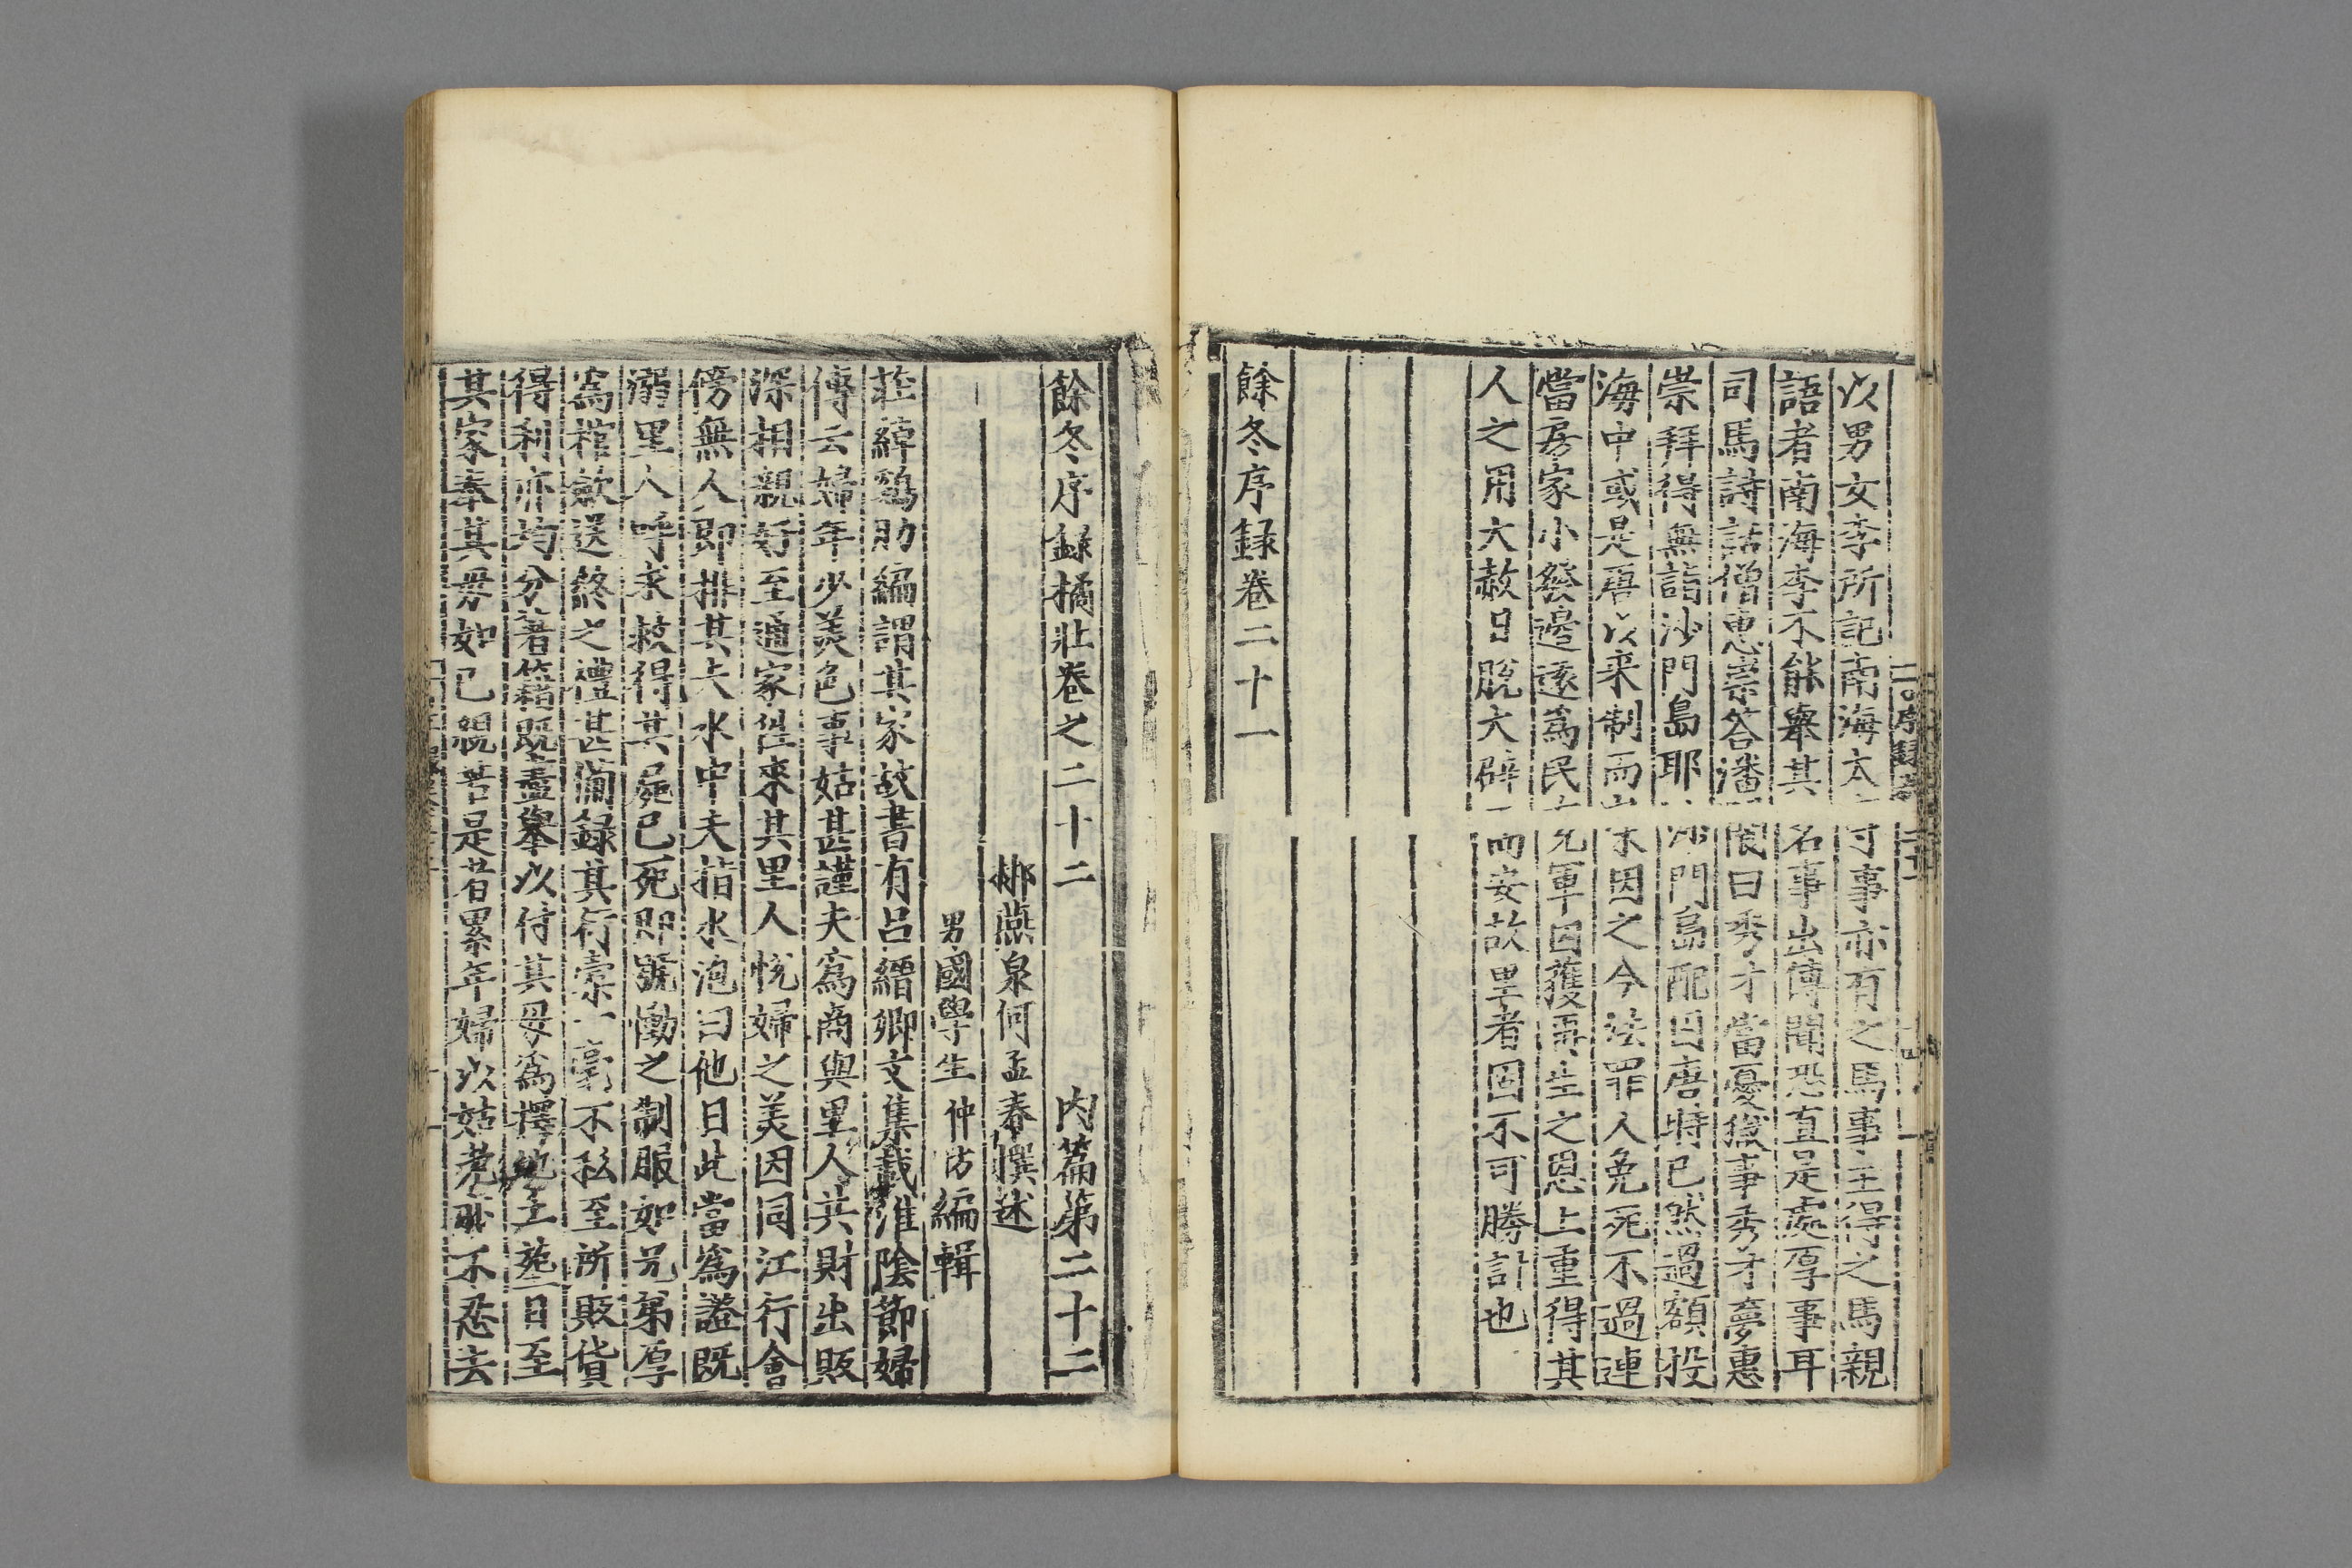 以男女李所記南海太守事亦有之馬事主得之馬親
語者南海李不能舉其名事出傳聞恐直是處厚事耳
司馬詩話僧惠崇答潘閬曰秀才當憂獄事秀才夢惠
崇拜得無詣沙門島耶沙門島配囚唐時已然過額投
海中或是唐以来制而宋因之今法罪人免死不過連
當房家小發邊遠爲民充軍囚獲再生之恩上重得其
人之用大赦日脫大辟而安故里者固不可勝計也
餘冬序録卷二十一
餘冬序録摘壯卷之二十二 内篇第二十二
郴燕泉何孟春撰述
男國學生仲方編輯
莊綽鷄肋編謂其家故書有吕縉卿文集載淮陰節婦
傳云婦年少美色事姑甚謹夫爲商與里人共財出販
深相親好至通家徃來其里人悅婦之美因同江行會
傍無人即排其夫水中夫指水泡曰他日此當爲證既
溺里人呼求救得其屍已死即號慟之制服如兄弟厚
爲棺歛送終之禮甚備録其行槖一毫不私至所販貨
得利亦均分著籍既盡舉以付其母爲擇地主葬日至
其家奉其母如己親若是者累年婦以姑老亦不忍去